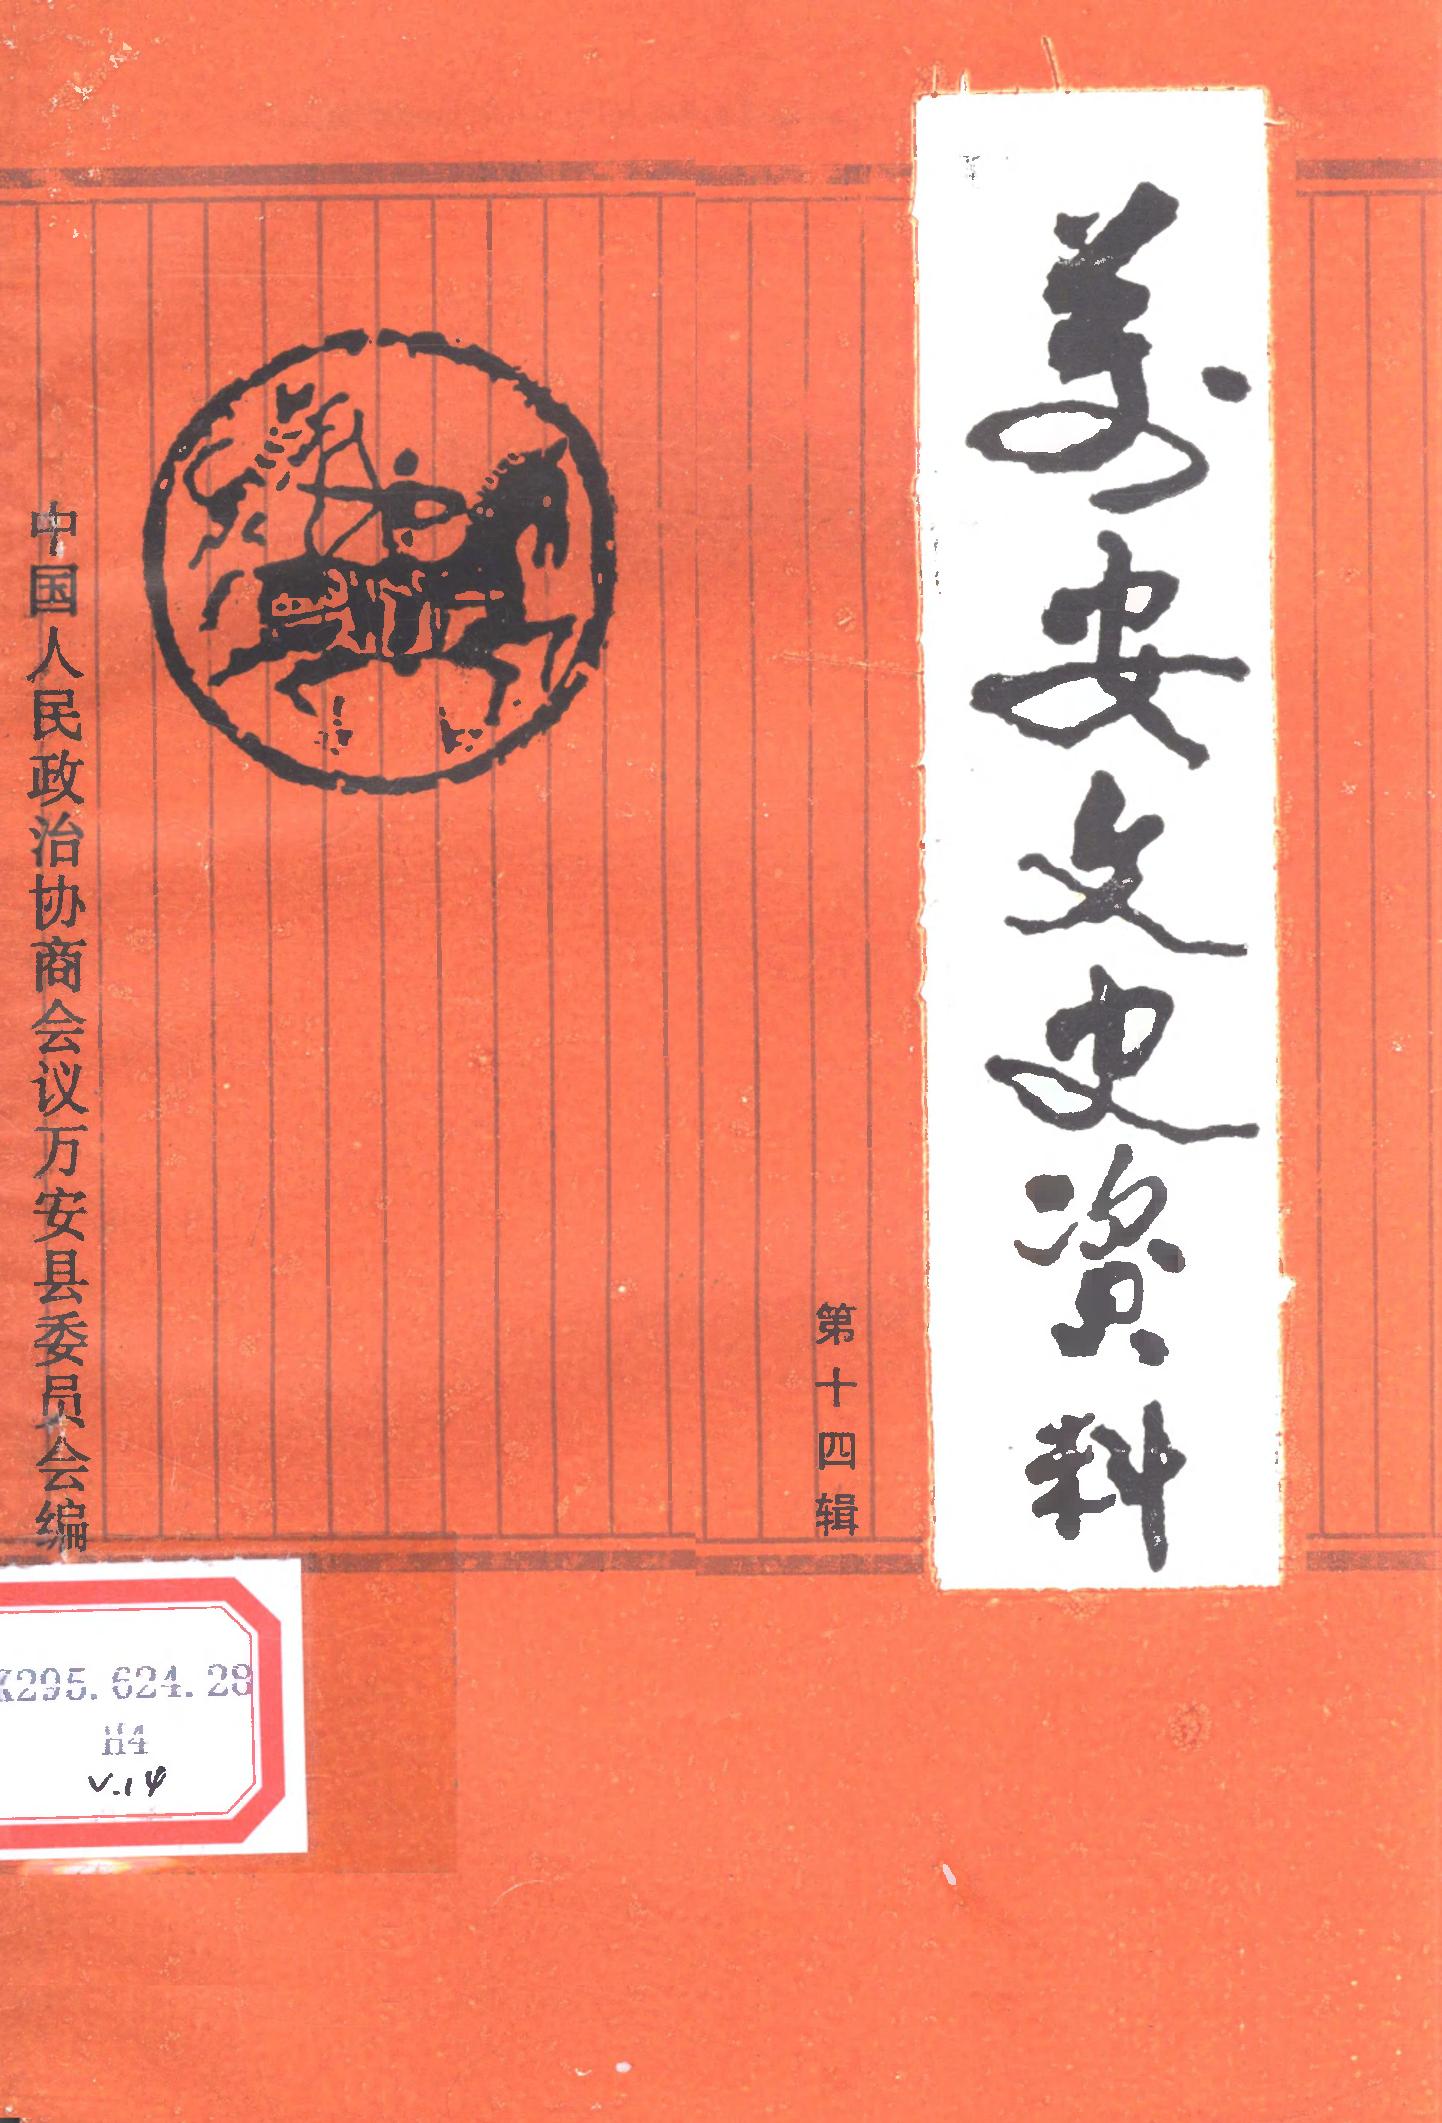 萬安文史资料
第十四辑
中国人民政治协商会议万安县委员会编
K295.624.28
H4
v.14